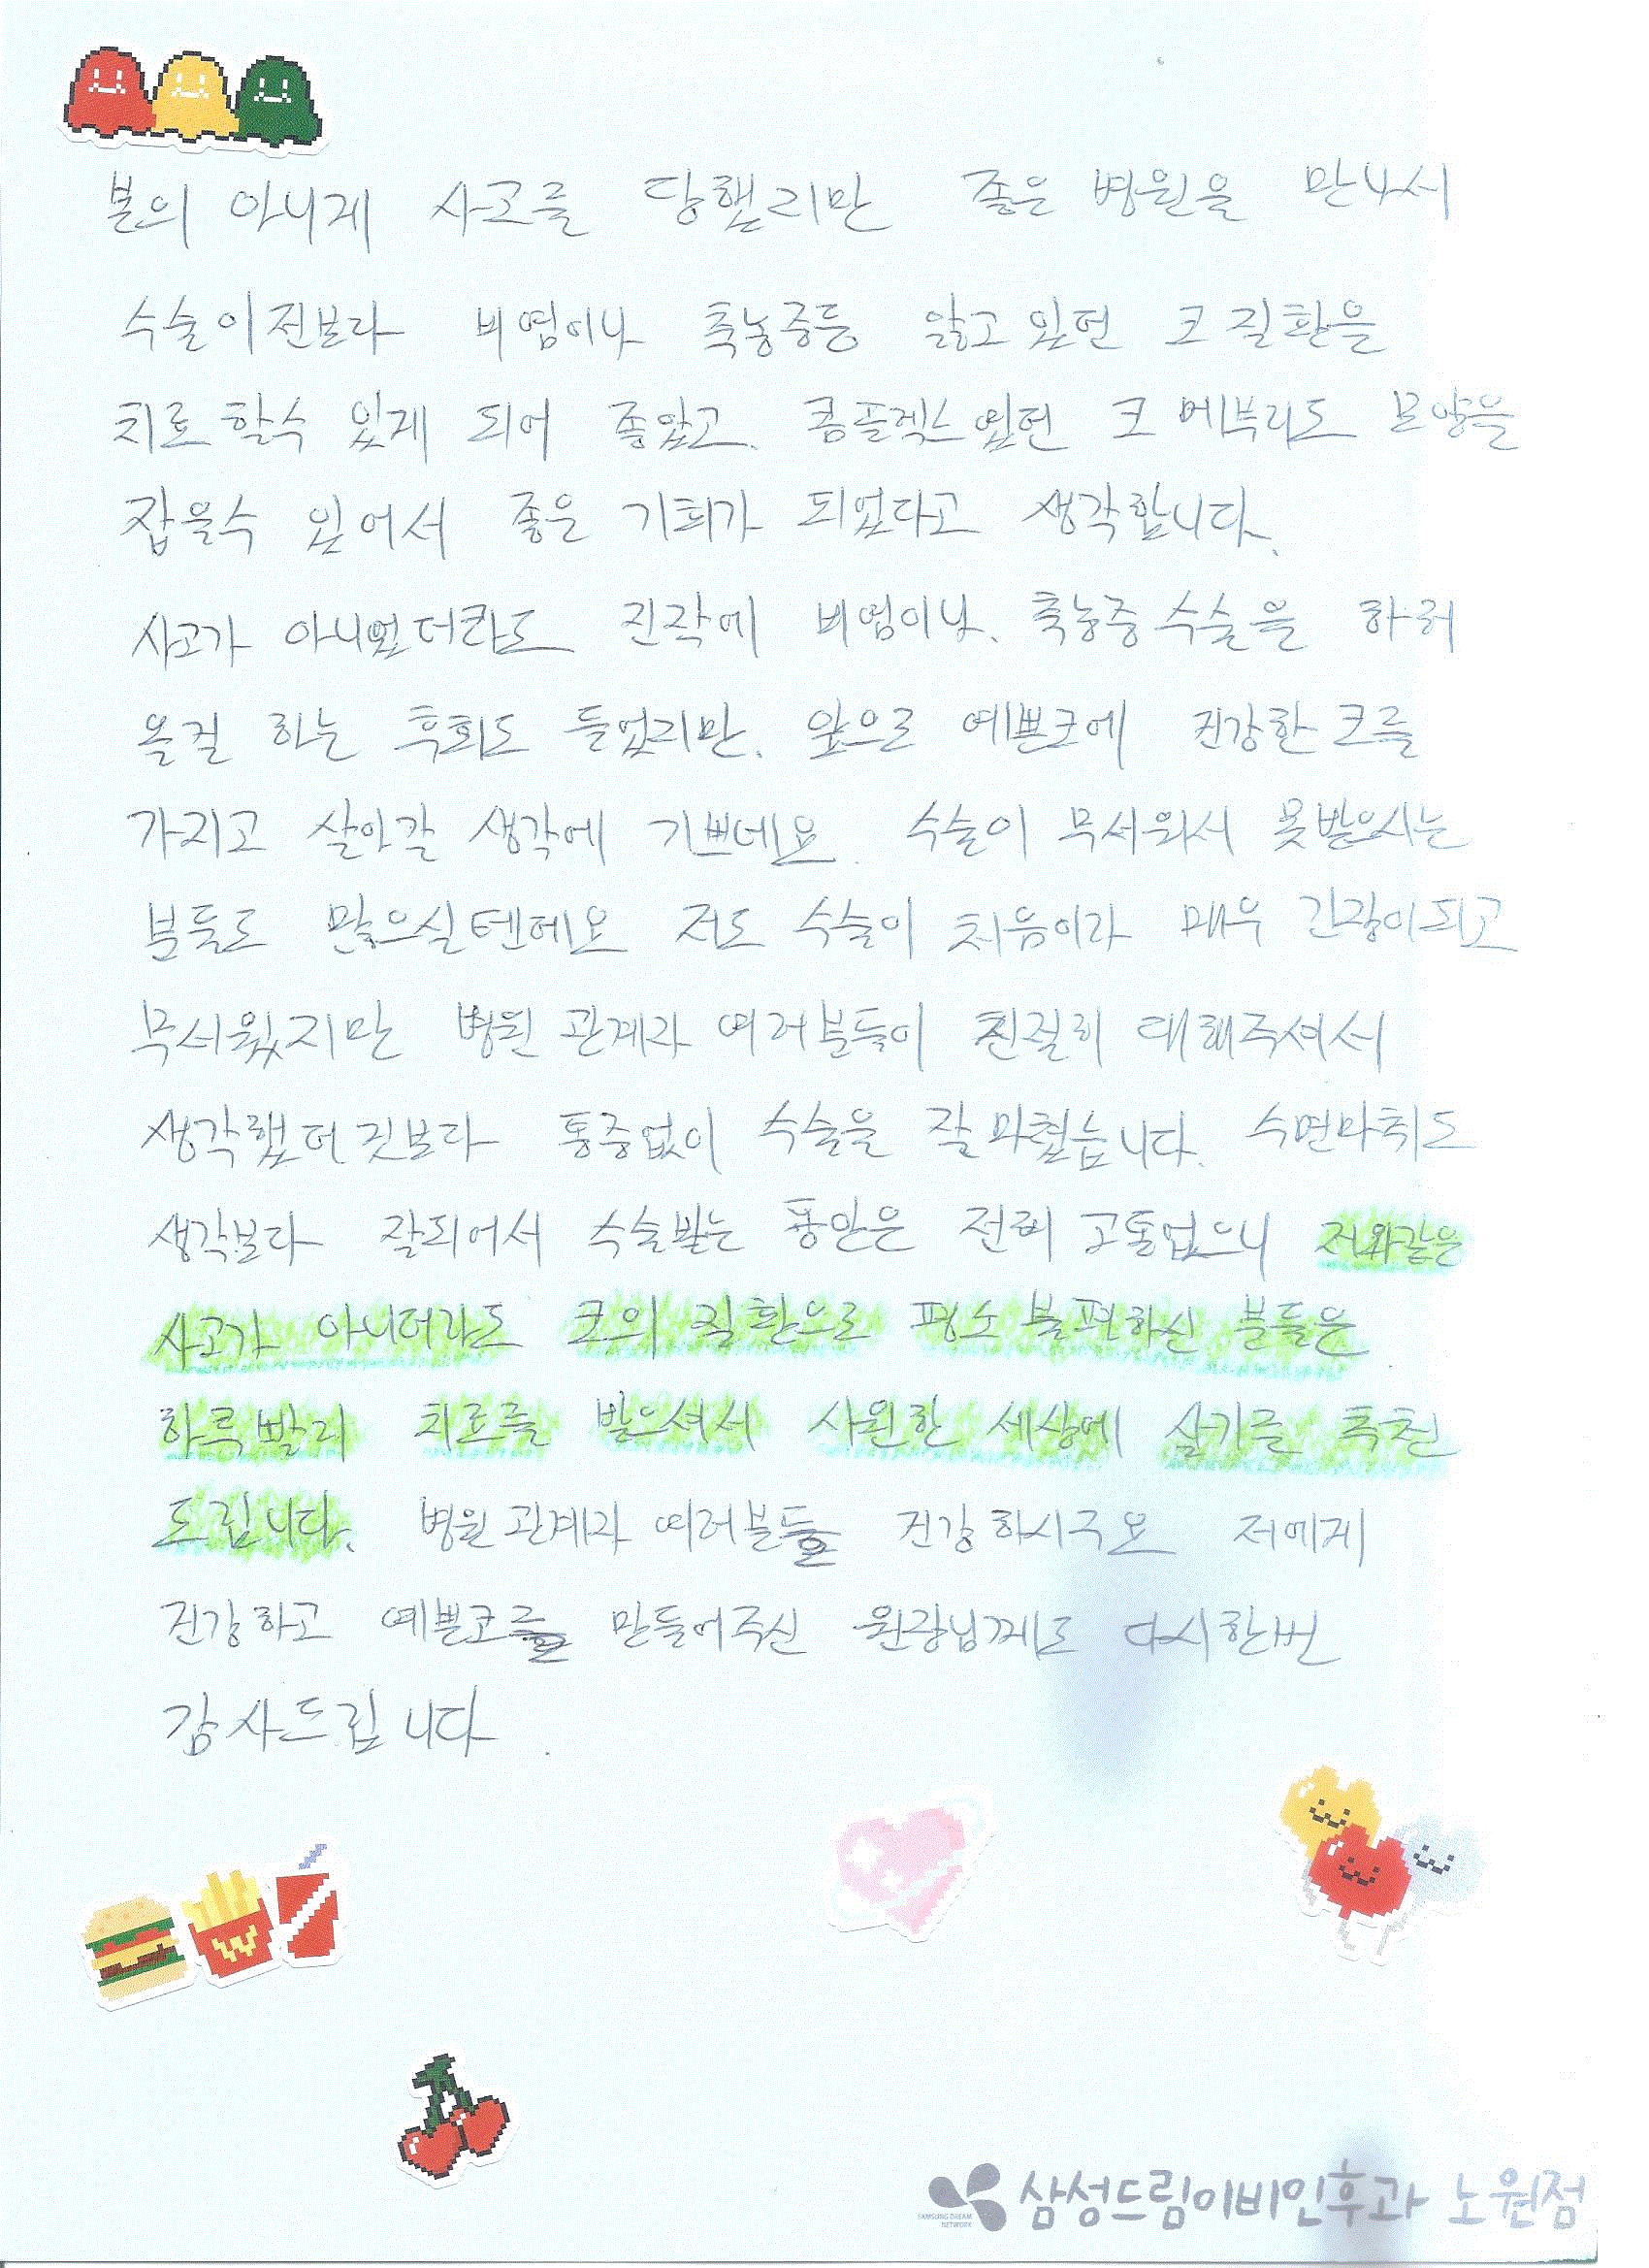 본의 아니게 사고를 당했지만 좋은 병원을 만나서
수술이전보다 비염이나 축농증등 앓고 있던 코 질환을
치료 할수 있게 되어 좋았고. 콤플렉스였던 코 메부리도 모양을
잡을수 있어서 좋은 기회가 되었다고 생각합니다.
사고가 아니었더라도 진작에 비염이나. 축농증 수술을 하러
올걸 하는 후회도 들었지만. 앞으로 예쁜코에 건강한 코를
가지고 살아갈 생각에 기쁘네요. 수술이 무서워서 못받으시는
분들도 많으실텐데요 저도 수술이 처음이라 매우 긴장이되고
무서웠지만 병원 관계자 여러분들이 친절히 대해주셔서
생각했던것보다 통증없이 수술을 잘 마쳤습니다. 수면마취도
생각보다 잘되어서 수술받는 동안은 전혀 고통없으니 저와같은
사고가 아니더라도 코의 질환으로 평소 불편하신 분들은
하루빨리 치료를 받으셔서 시원한 세상에 살기를 추천
드립니다. 병원 관계자 여러분들 건강 하시구요 저에게
건강하고 예쁜코를 만들어주신 원장님께도 다시한번
감사드립니다.
SAMSUNG DREAM NETWORK 삼성드림이비인후과 노원점